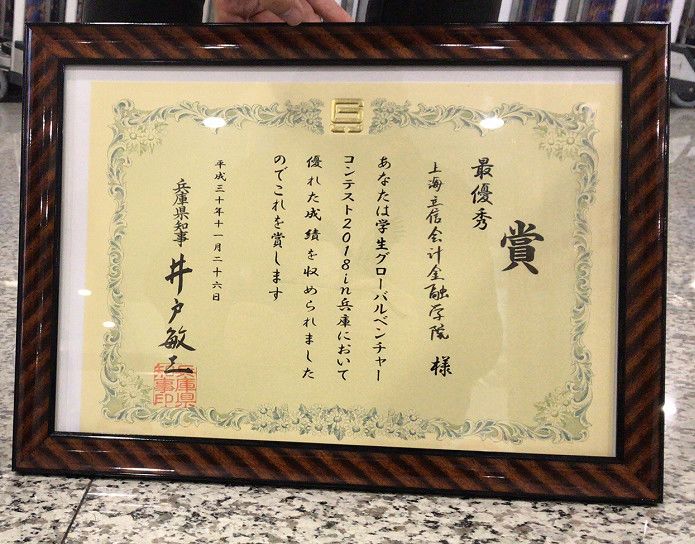 賞
最優秀
上海立信会计金融学院 様
あなたは学生グローバルベンチャー
コンテスト2018in兵庫において
優れた成績を収められました
のでこれを賞します
平成三十年十一月二十六日
兵庫県知事 井戸敏三
兵庫県
知事印